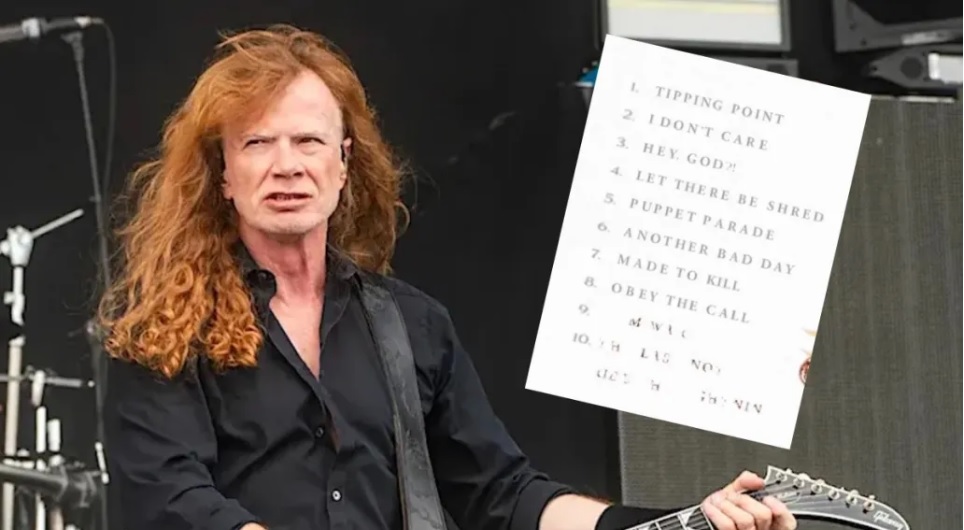 1. TIPPING POINT
2. I DON'T CARE
3. HEY, GOD?!
4. LET THERE BE SHRED
5. PUPPET PARADE
6. ANOTHER BAD DAY
7. MADE TO KILL
8. OBEY THE CALL
9.
10.
Gibson